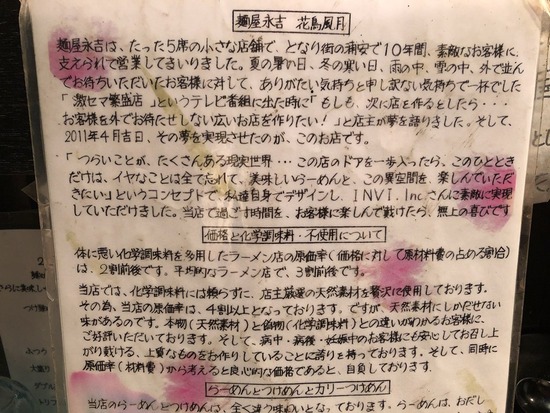 麺屋永吉 花鳥風月
麺屋永吉は、たった5席の小さな店舗で、となり街の浦安で10年間、素敵なお客様に、
支えられて営業してきりました。夏の暑い日、冬の寒い日、雨の中、雪の中、外で並んで
お待ちいただいたお客様に対して、ありがたい気持ちと申し訳ない気持ちで一杯でした
「激セマ繁盛店」というテレビ番組に出た時に「もしも、次に店を作るとしたら・・・
お客様を外でお待たせしない広いお店を作りたい!」と店主が夢を語りました。そして、
2011年4月吉日、その夢を実現させたのが、このお店です。
「つらいことが、たくさんある現実世界・・・この店のドアを一歩入ったら、このひととき
だけは、イヤなことは全て忘れて、美味しいらーめんと、この異空間を、楽しんでいただ
きたい」というコンセプトで、私達自身でデザインし、INVI.Inc.さんに素敵に実現
していただけました。当店で過ごす時間を、お客様に楽しんで戴けたら、無上の喜びです
価格と化学調味料・不使用について
体に悪い化学調味料を多用したラーメン店の原価率(価格に対して原材料費の占める割合)
は、2割前後です。平均的なラーメン店で、3割前後です。
当店では、化学調味料には頼らずに、店主厳選の天然素材を贅沢に使用しております。
その為、当店の原価率は、4割以上となっております。ですが、天然素材にしかだせない
味があるのです。本物(天然素材)と偽物(化学調味料)との違いがわかるお客様に、
ご好評いただいております。そして、病中・病後・妊娠中のお客様にも安心してお召し上
がり戴ける、上質なものをお作りしていることに誇りを持っております。そして、同時に
原価率(材料費)から考えると良心的な価格であると、自負しております。
らーめんとつけめんとカリーつけめん
当店のらーめんとつけめんは、全く違う味わいとなっております。らーめんは、おだし